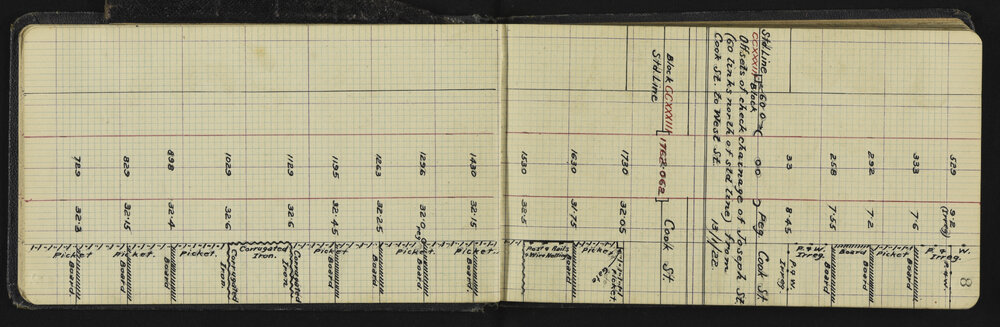 8
Std Line
Block
CCXXXII
600
00
Peg Cook St.
Offsets of check chainage of Joseph St
(60 links north of std line) from
Cook St. to West St.
13/1/22.
Block CCXXXII
Std Line
[1762.062]
Cook St
529 9.2 (Irreg) P. & W. Irreg.
333 7.6 Picket Board
292 7.2 Board
258 7.55 P. & W. Irreg.
33 8.45 P. & W. Irreg.
1730 32.05 Picket.
1630 31.75 Picket. Board
1530 32.5 Post & Rails & Wire Netting
1430 32.15 Picket. Board.
1296 32.0 Picket Board
1263 32.25 Picket Board.
1195 32.45 Picket Board.
1129 32.6 Corrugated Iron. Corrugated Iron.
1029 32.6 Corrugated Iron
898 32.4 Picket Board
829 32.15 Picket. Board
729 32.3 Picket Board